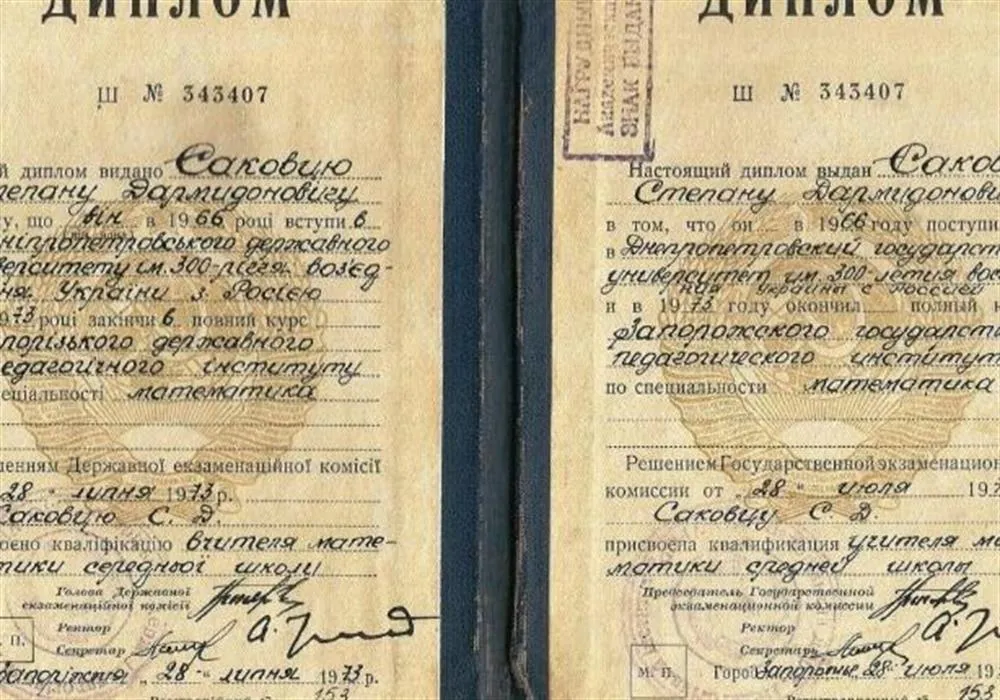 ДИПЛОМ
Ш № 343407
й диплом видано Саковцю
тепану Дармидоновичу
у, що він в 1966 році вступив
ніпропетровського державного
верситету ім. 300-річчя возз'єд-
ня України з Росією
973 році закінчив повний курс
порізького державного
едагогічного інституту
еціальності математика
шенням Державної екзаменаційної комісії
28 " липня 1973 р.
Саковцю С. Д.
оєно кваліфікацію вчителя мате-
тики середньої школи
Голова Державної
екзаменаційної комісії
Ректор
П.
Секретар
Запоріжжя „ 28 " липня 1973 р.
153
НАГРУДНЫЙ
Академическ
ЗНАК ВЫДАН
ДИПЛОМ
Ш № 343407
Настоящий диплом выдан Саков
Степану Дармидонови
в том, что он в 1966 году поступи
в Днепропетровский государств
университет им. 300-летия вос
ния Украины с Россией
и в 1973 году окончил полный к
Запорожского государств
педагогического институт
по специальности математика
Решением Государственной экзаменацион
комиссии от „ 28 " июля 197
Саковцу С. Д.
присвоена квалификация учителя ма
матики средней школы
Председатель Государственной
экзаменационной комиссии
Ректор
Секретарь
М. П.
Город Запорожье 28 " июля 19
153